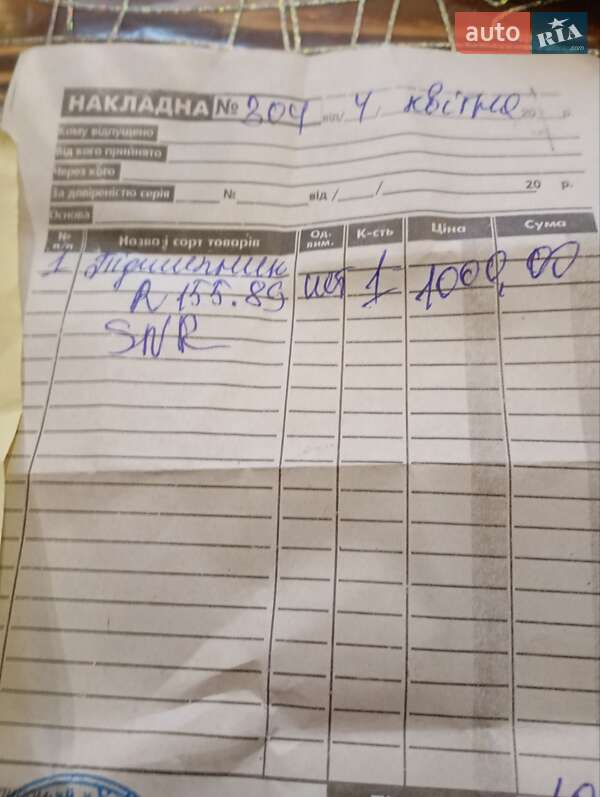 auto RIA .com
НАКЛАДНА № 304 від 4 квітня 20 р.
Кому відпущено
Від кого прийнято
Через кого
За довіреністю серія № від / / 20 р.
Основа
№ п/п Назва і сорт товарів Од. вим. К-сть Ціна Сума
1 Підшипник шт 1 1000,00
R 155.89
SNR